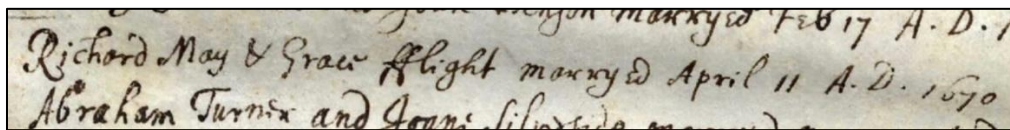 marryed Feb 17 A. D. 1
Richard May & Grace fflight marryed April 11 A. D. 1670
Abraham Turner and